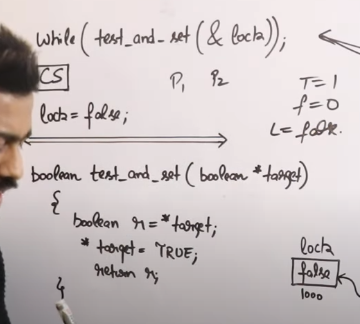 while( test_and_set(& lock));
CS
P1 P2
T=1
f=0
lock= false;
L= false.
boolean test_and_set( boolean *target)
{
boolean r= *target;
* target= TRUE;
return r;
}
lock
false
1000